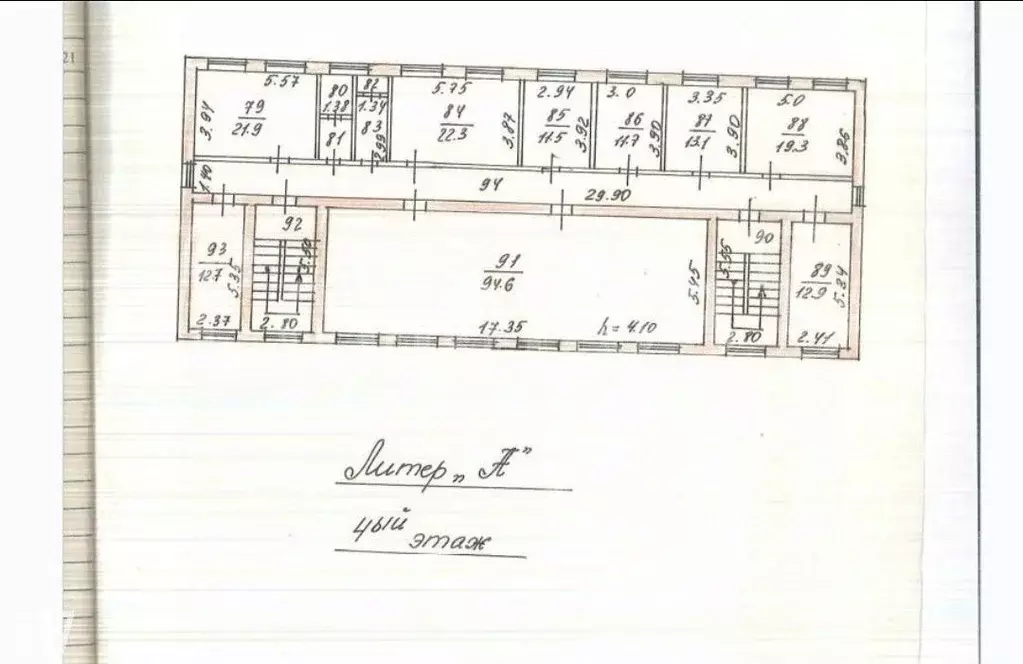 21
5.57
80
82
5.75
2.94
3.0
3.35
5.0
3.94
79
21.9
1.38
1.34
84
22.3
3.87
85
11.5
3.92
86
11.7
3.90
87
13.1
3.90
88
19.3
3.86
81
83
2.99
1.40
94
29.90
92
90
93
12.7
5.35
5.50
91
94.6
5.45
5.55
89
12.9
5.34
2.37
2.80
17.35
h = 4.10
2.80
2.41
Литер „А"
4ый этаж